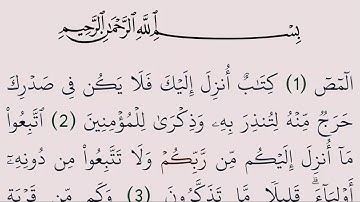 بِسْمِ اللَّهِ الرَّحْمَٰنِ الرَّحِيمِ
الٓمٓصٓ (1) كِتَٰبٌ أُنزِلَ إِلَيْكَ فَلَا يَكُن فِى صَدْرِكَ
حَرَجٌ مِّنْهُ لِتُنذِرَ بِهِۦ وَذِكْرَىٰ لِلْمُؤْمِنِينَ (2) ٱتَّبِعُوا۟
مَآ أُنزِلَ إِلَيْكُم مِّن رَّبِّكُمْ وَلَا تَتَّبِعُوا۟ مِن دُونِهِۦٓ
أَوْلِيَآءَ ۗ قَلِيلًا مَّا تَذَكَّرُونَ (3) وَكَم مِّن قَرْيَةٍ